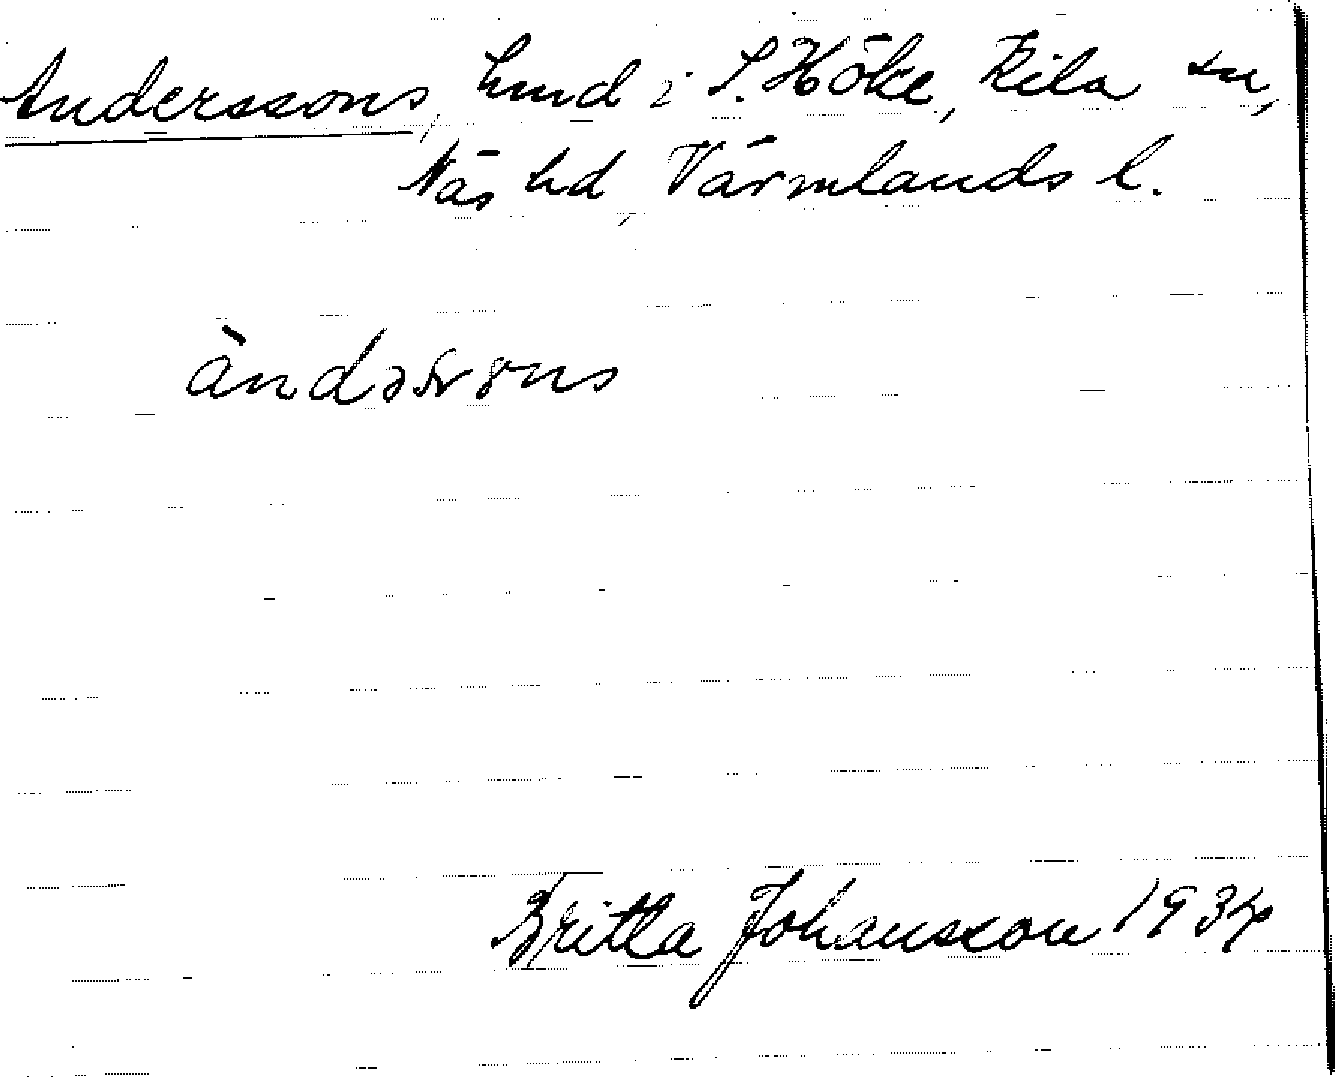 Anderssons, hmd i S. Höke, Kila sn,
Näs hd, Värmlands l.
Britta Johansson 1934